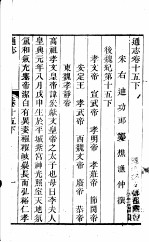 通志卷十五下
宋右迪功郎鄭樵漁仲撰
後魏紀第十五下
孝文帝 宣武帝 孝明帝 孝莊帝 節閔帝
安定王 孝武帝 西魏文帝 廢帝 恭帝
東魏孝靜帝
高祖孝文皇帝諱宏獻文皇帝之太子也母曰李夫人
皇興元年八月戊申生於平城紫宮神光照室天地氛
氳和氣充塞帝潔白有異姿襁褓岐嶷長而弘裕仁孝
通志
卷十五下